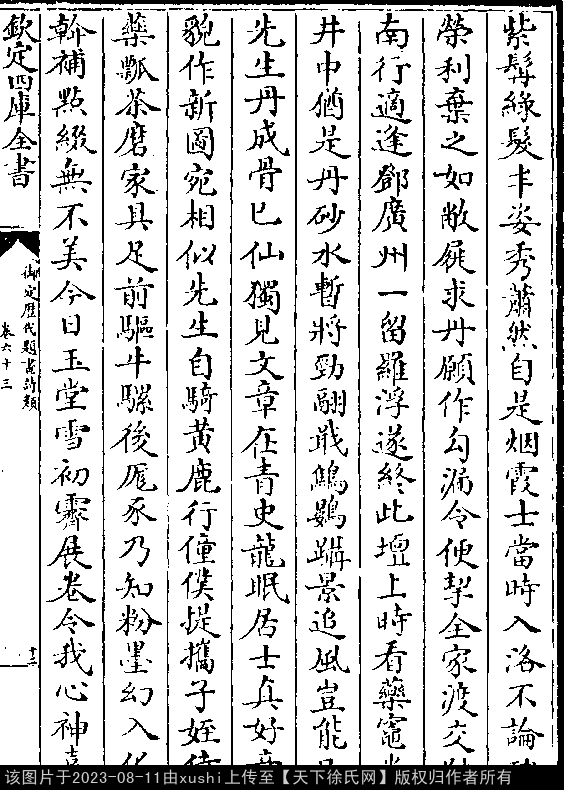 紫髯綠髮丰姿秀蕭然自是烟霞士當時入洛不論
榮利棄之如敝屣求丹願作勾漏令便挈全家渡交
南行適逢鄧廣州一留羅浮遂終此壇上時看藥竈
井中猶是丹砂水暫將勁翮戢鷦鷃躡景追風豈能
先生丹成骨已仙獨見文章在青史龍眠居士真好
貌作新圖宛相似先生自騎黄鹿行僮僕提攜子姪
藥瓢茶磨家具足前驅牛騾後尨豕乃知粉墨幻入
幹補點綴無不美今日玉堂雪初霽展卷令我心神
欽定四庫全書
御定歷代題畫詩類
卷六十三
十二
该图片于2023-08-11由xushi上传至【天下徐氏网】版权归作者所有